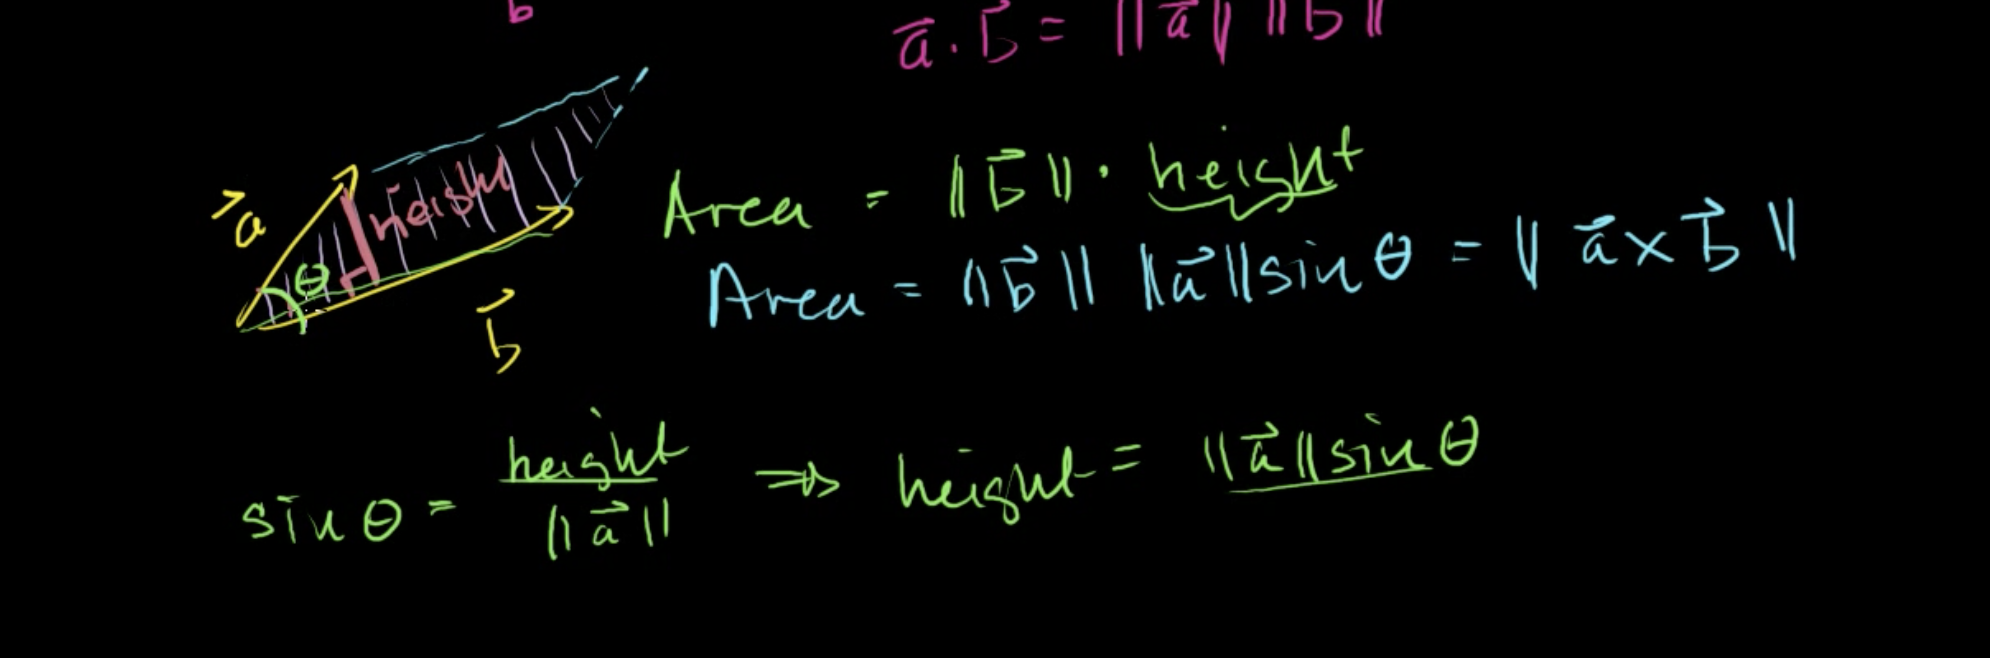 b
a⃗ · b⃗ = ||a⃗|| ||b⃗||
a⃗
height
θ
b⃗
Area = ||b⃗|| · height
Area = ||b⃗|| ||a⃗|| sin θ = ||a⃗ × b⃗||
sin θ = height / ||a⃗|| ⇒ height = ||a⃗|| sin θ